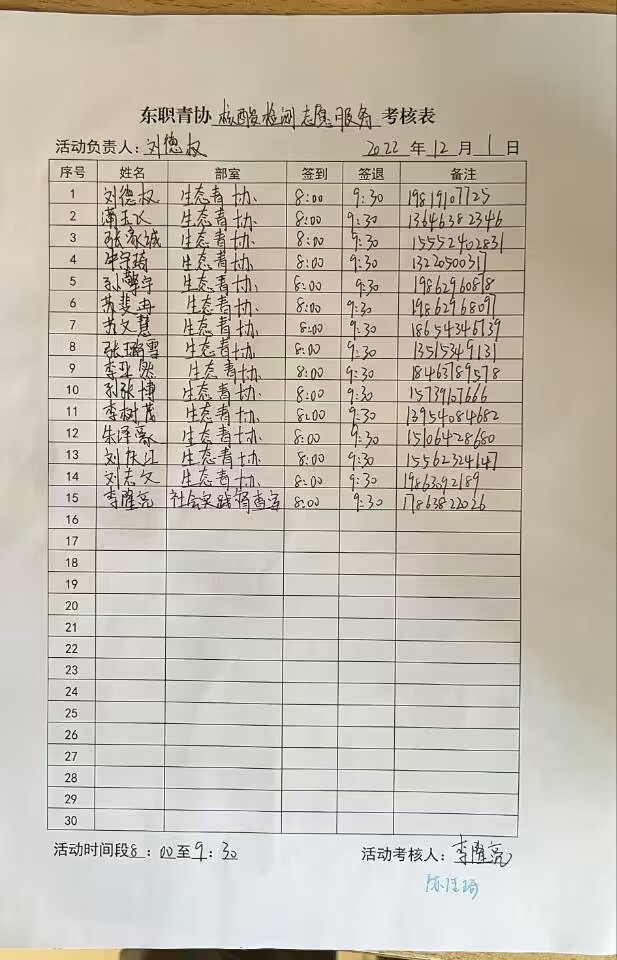 东职青协 核酸检测志愿服务 考核表
活动负责人：刘德权 2022 年 12 月 1 日
序号 姓名 部室 签到 签退 备注
1 刘德权 生态青协 8:00 9:30 19819107725
2 生态青协 8:00 9:30 13646382346
3 张家诚 生态青协 8:00 9:30 15552402831
4 生态青协 8:00 9:30
5 生态青协 8:00 9:30
6 苏斐冉 生态青协 8:00 9:30 19862968097
7 苏文慧 生态青协 8:00 9:30 18654346739
8 张璐雪 生态青协 8:00 9:30 13515349131
9 李亚然 生态青协 8:00 9:30 18463789578
10 孙张博 生态青协 8:00 9:30 15739107666
11 李树茂 生态青协 8:00 9:30 13954084682
12 朱泽豪 生态青协 8:00 9:30 15106428680
13 刘庆江 生态青协 8:00 9:30 15562324147
14 刘志文 生态青协 8:00 9:30 19863092189
15 李隆亮 社会实践督查室 8:00 9:30 17863822026
16
17
18
19
20
21
22
23
24
25
26
27
28
29
30
活动时间段8：00至9：30 活动考核人：李隆亮